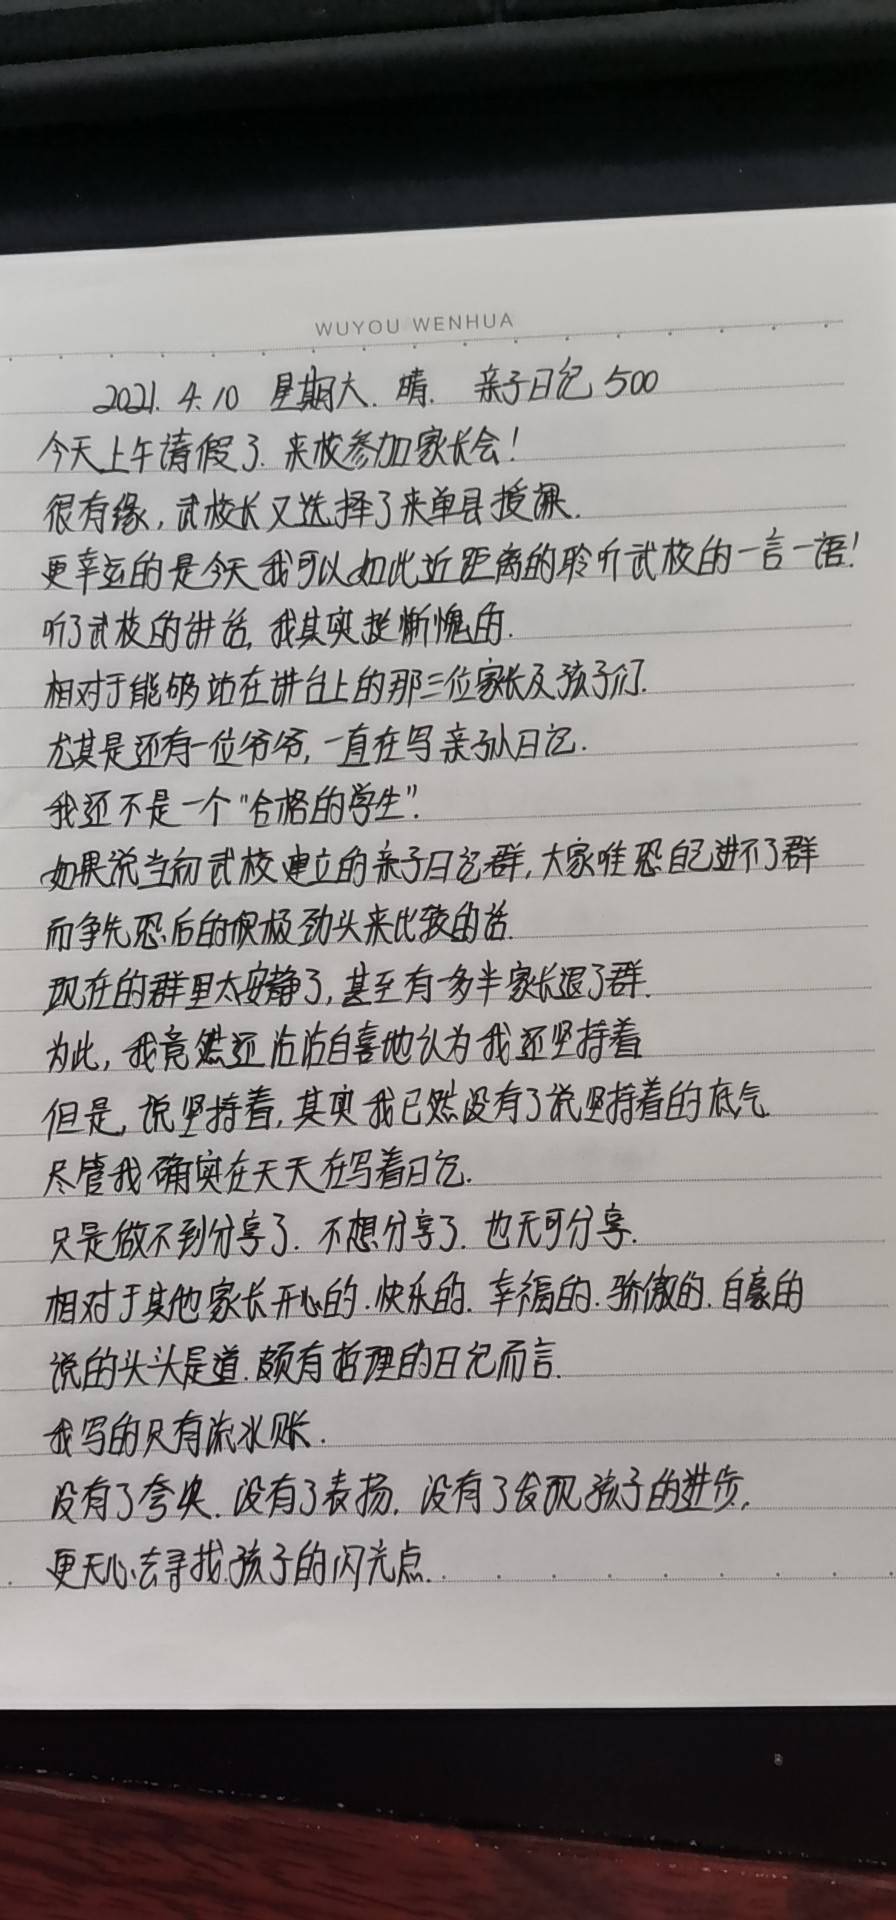 WUYOU WENHUA
2021. 4.10 星期六. 晴. 亲子日记 500
今天上午请假了.来校参加家长会!
很有缘,武校长又选择了来单县授课.
更幸运的是今天我可以如此近距离的聆听武校的一言一语!
听了武校的讲话,我其实挺惭愧的.
相对于能够站在讲台上的那三位家长及孩子们.
尤其是还有一位爷爷,一直在写亲子日记.
我还不是一个"合格的学生".
如果说当初武校建立的亲子日记群,大家唯恐自己进不了群
而争先恐后的积极劲头来比较的话.
现在的群里太安静了,甚至有多半家长退了群.
为此,我竟然还沾沾自喜地认为我还坚持着
但是,说坚持着,其实我已然没有了说坚持着的底气.
尽管我确实在天天在写着日记.
只是做不到分享了.不想分享了.也无可分享.
相对于其他家长开心的.快乐的.幸福的.骄傲的.自豪的
说的头头是道.颇有哲理的日记而言.
我写的只有流水账.
没有了夸奖.没有了表扬.没有了发现孩子的进步,
更无心去寻找孩子的闪光点.